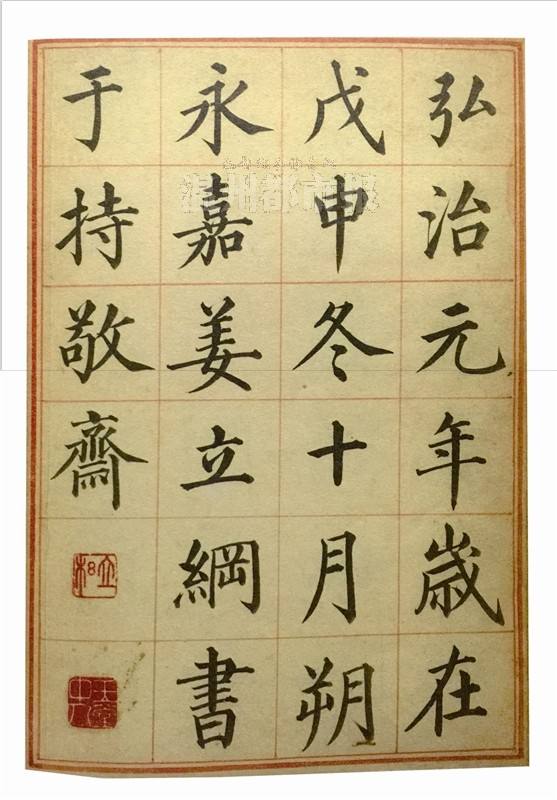 弘治元年歲在
戊申冬十月朔
永嘉姜立綱書
于持敬齋